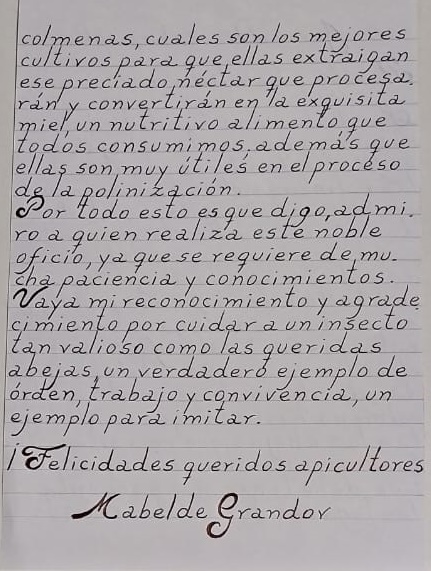 colmenas, cuales son los mejores
cultivos para que, ellas extraigan
ese preciado néctar que procesa.
rán y convertirán en la exquisita
miel, un nutritivo alimento que
todos consumimos, además que
ellas son muy útiles en el proceso
de la polinización.
Por todo esto es que digo, admi.
ro a quien realiza este noble
oficio, ya que se requiere de, mu.
cha paciencia y conocimientos.
Vaya mi reconocimiento y agrade
cimiento por cuidar a un insecto
tan valioso como las queridas
abejas, un verdadero ejemplo de
órden, trabajo y convivencia, un
ejemplo para imitar.
¡Felicidades queridos apicultores
Mabel de Grandov